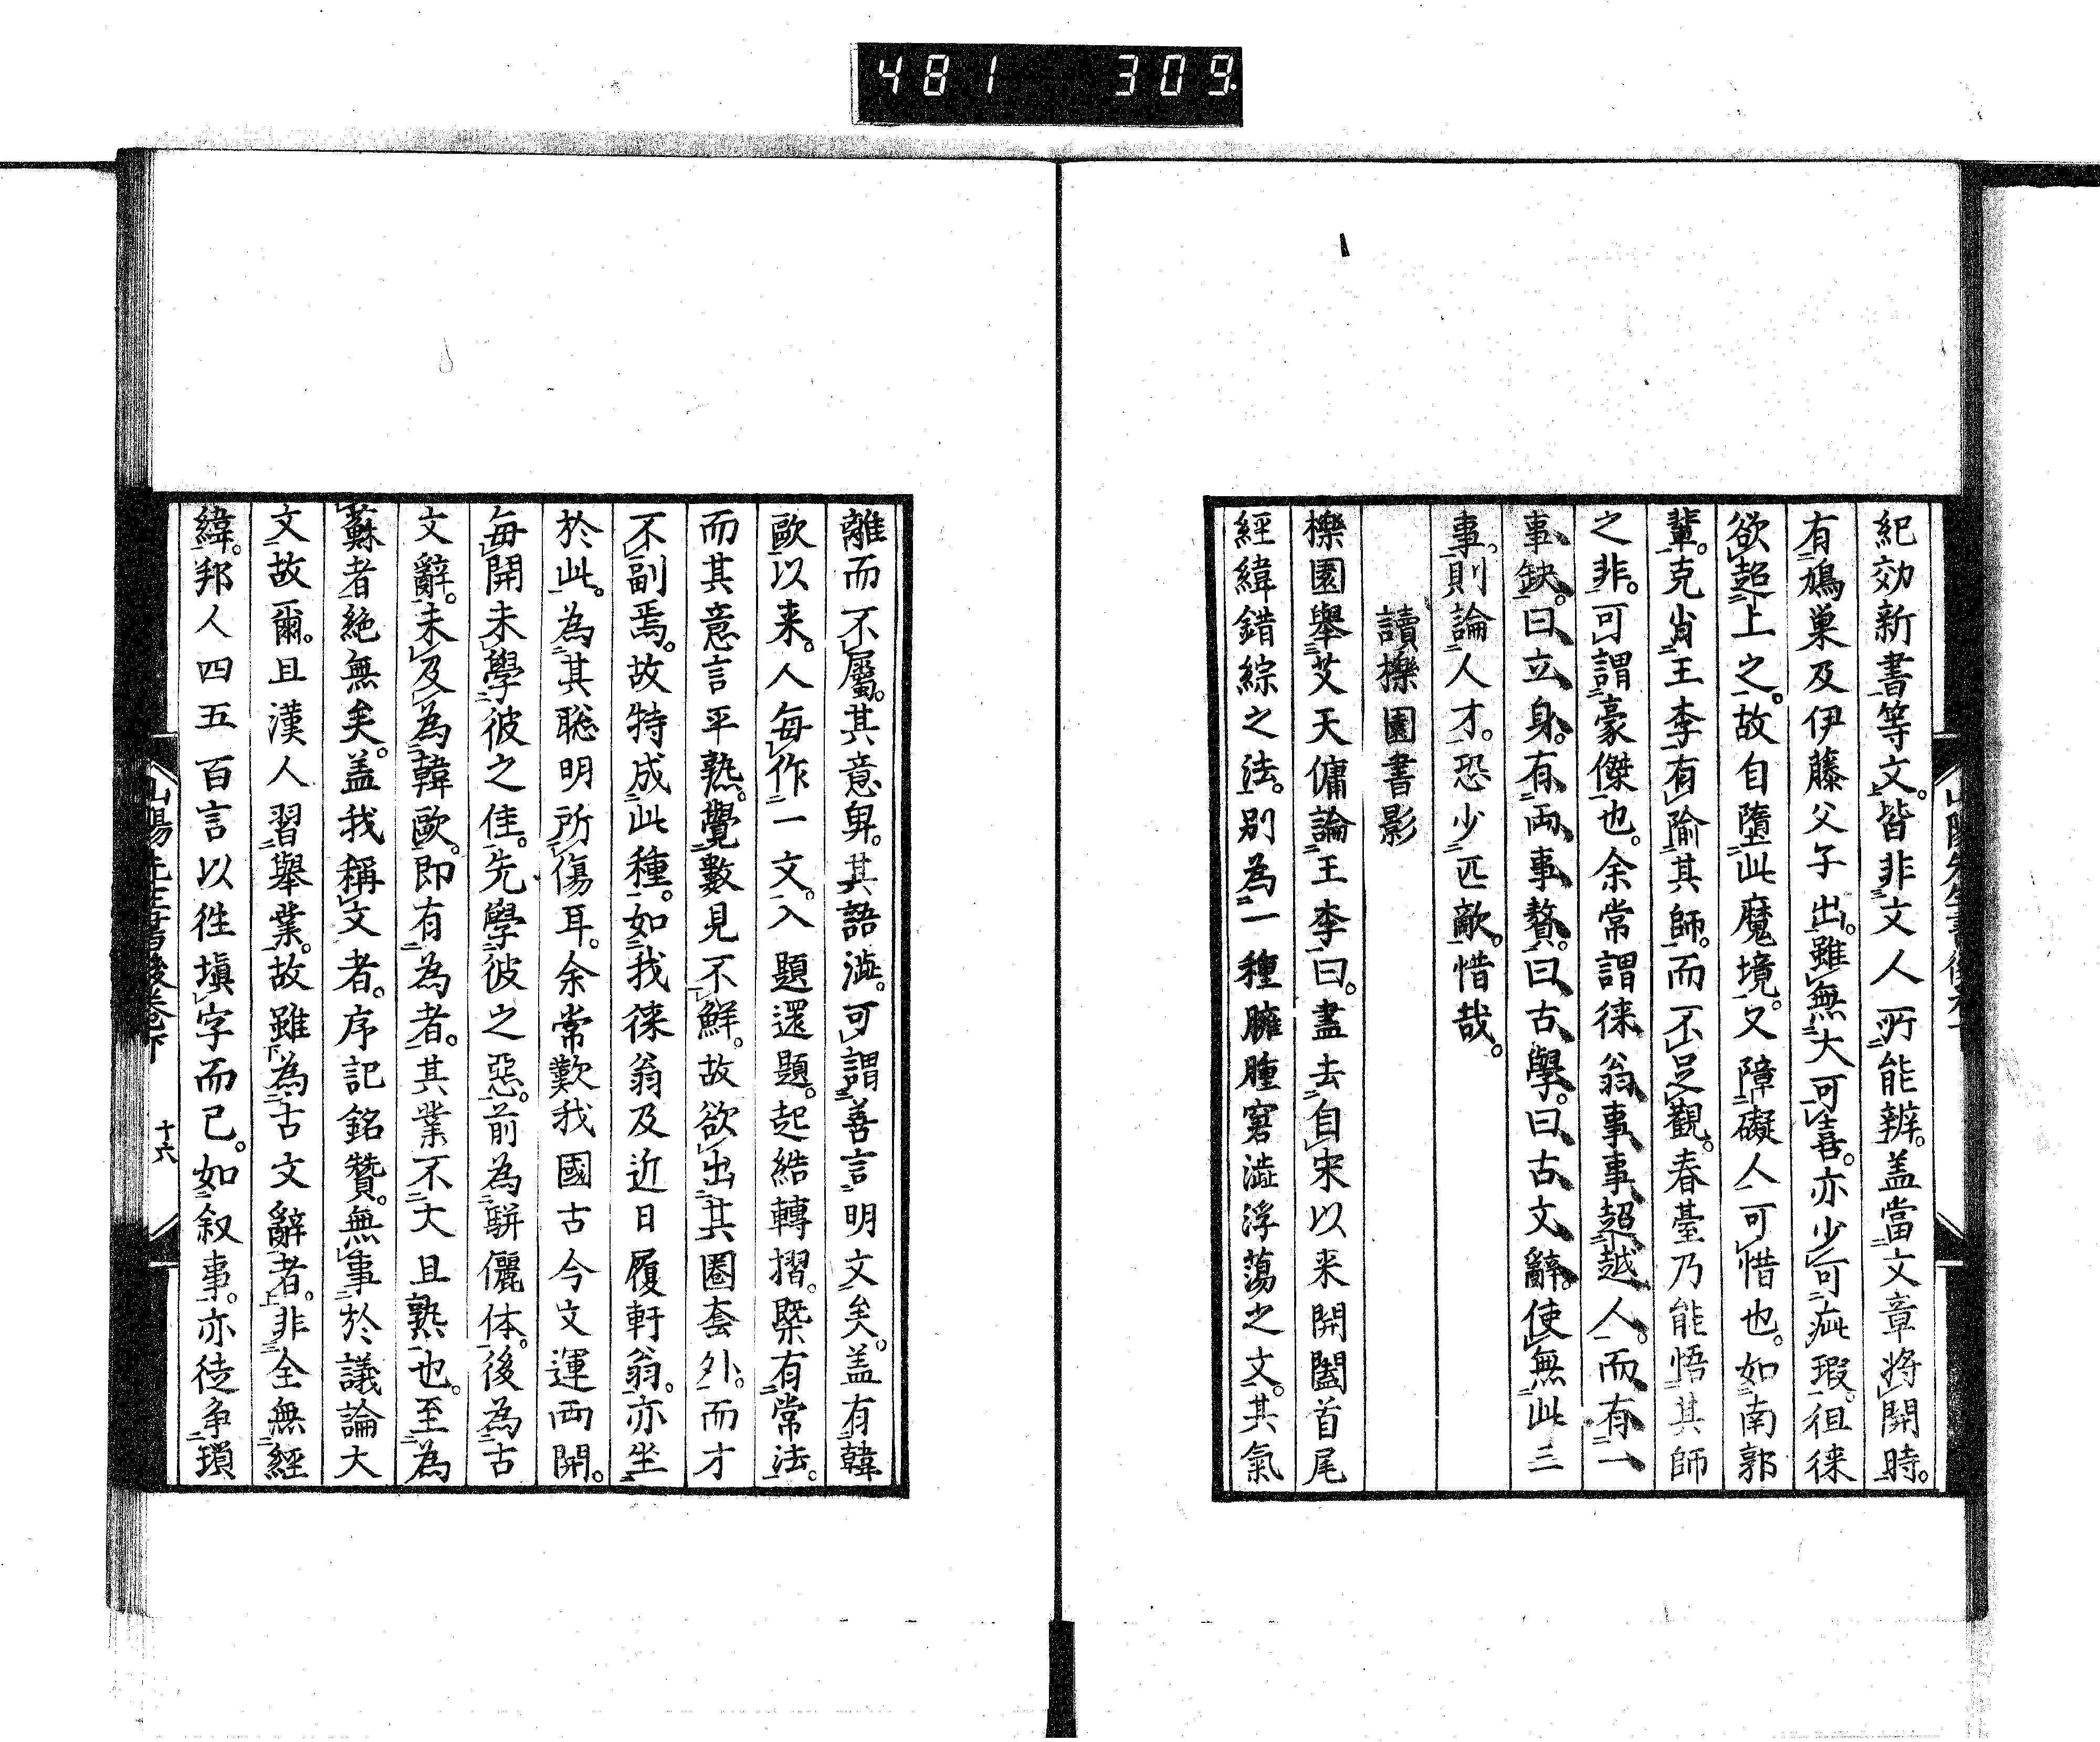 481 309
紀効新書等文。皆非文人所能辨。盖當文章将開時。
有鳩巢及伊藤父子出。雖無大可喜。亦少可疵瑕。徂徠
欲超上之。故自墮此魔境。又障礙人可惜也。如南郭
輩。克肖王李有隃其師。而不足觀。春臺乃能悟其師
之非。可謂豪傑也。余常謂徠翁事事超越人。而有一
事缺。曰立身。有両事贅。曰古學。曰古文辭。使無此三
事。則論人才。恐少匹敵。惜哉。
讀櫟園書影
櫟園舉艾天傭論王李曰。盡去自宋以来開闔首尾
經緯錯綜之法。別為一種臃腫窘澁浮蕩之文。其氣
離而不屬。其意卑。其語澁。可謂善言明文矣。盖有韓
歐以来。人每作一文。入題還題。起結轉摺。槩有常法。
而其意言平熟。覺數見不鮮。故欲出其圈套外。而才
不副焉。故特成此種。如我徠翁及近日履軒翁。亦坐
於此。為其聡明所傷耳。余常歎我國古今文運両開。
每開未學彼之佳。先學彼之惡。前為駢儷体。後為古
文辭。未及為韓歐。即有為者。其業不大且熟也。至為
蘇者絶無矣。盖我稱文者。序記銘贊。無事於議論大
文故爾。且漢人習舉業。故雖為古文辭者。非全無經
緯。邦人四五百言以徃塡字而已。如叙事。亦徒争瑣
山陽先生書後卷下 十六